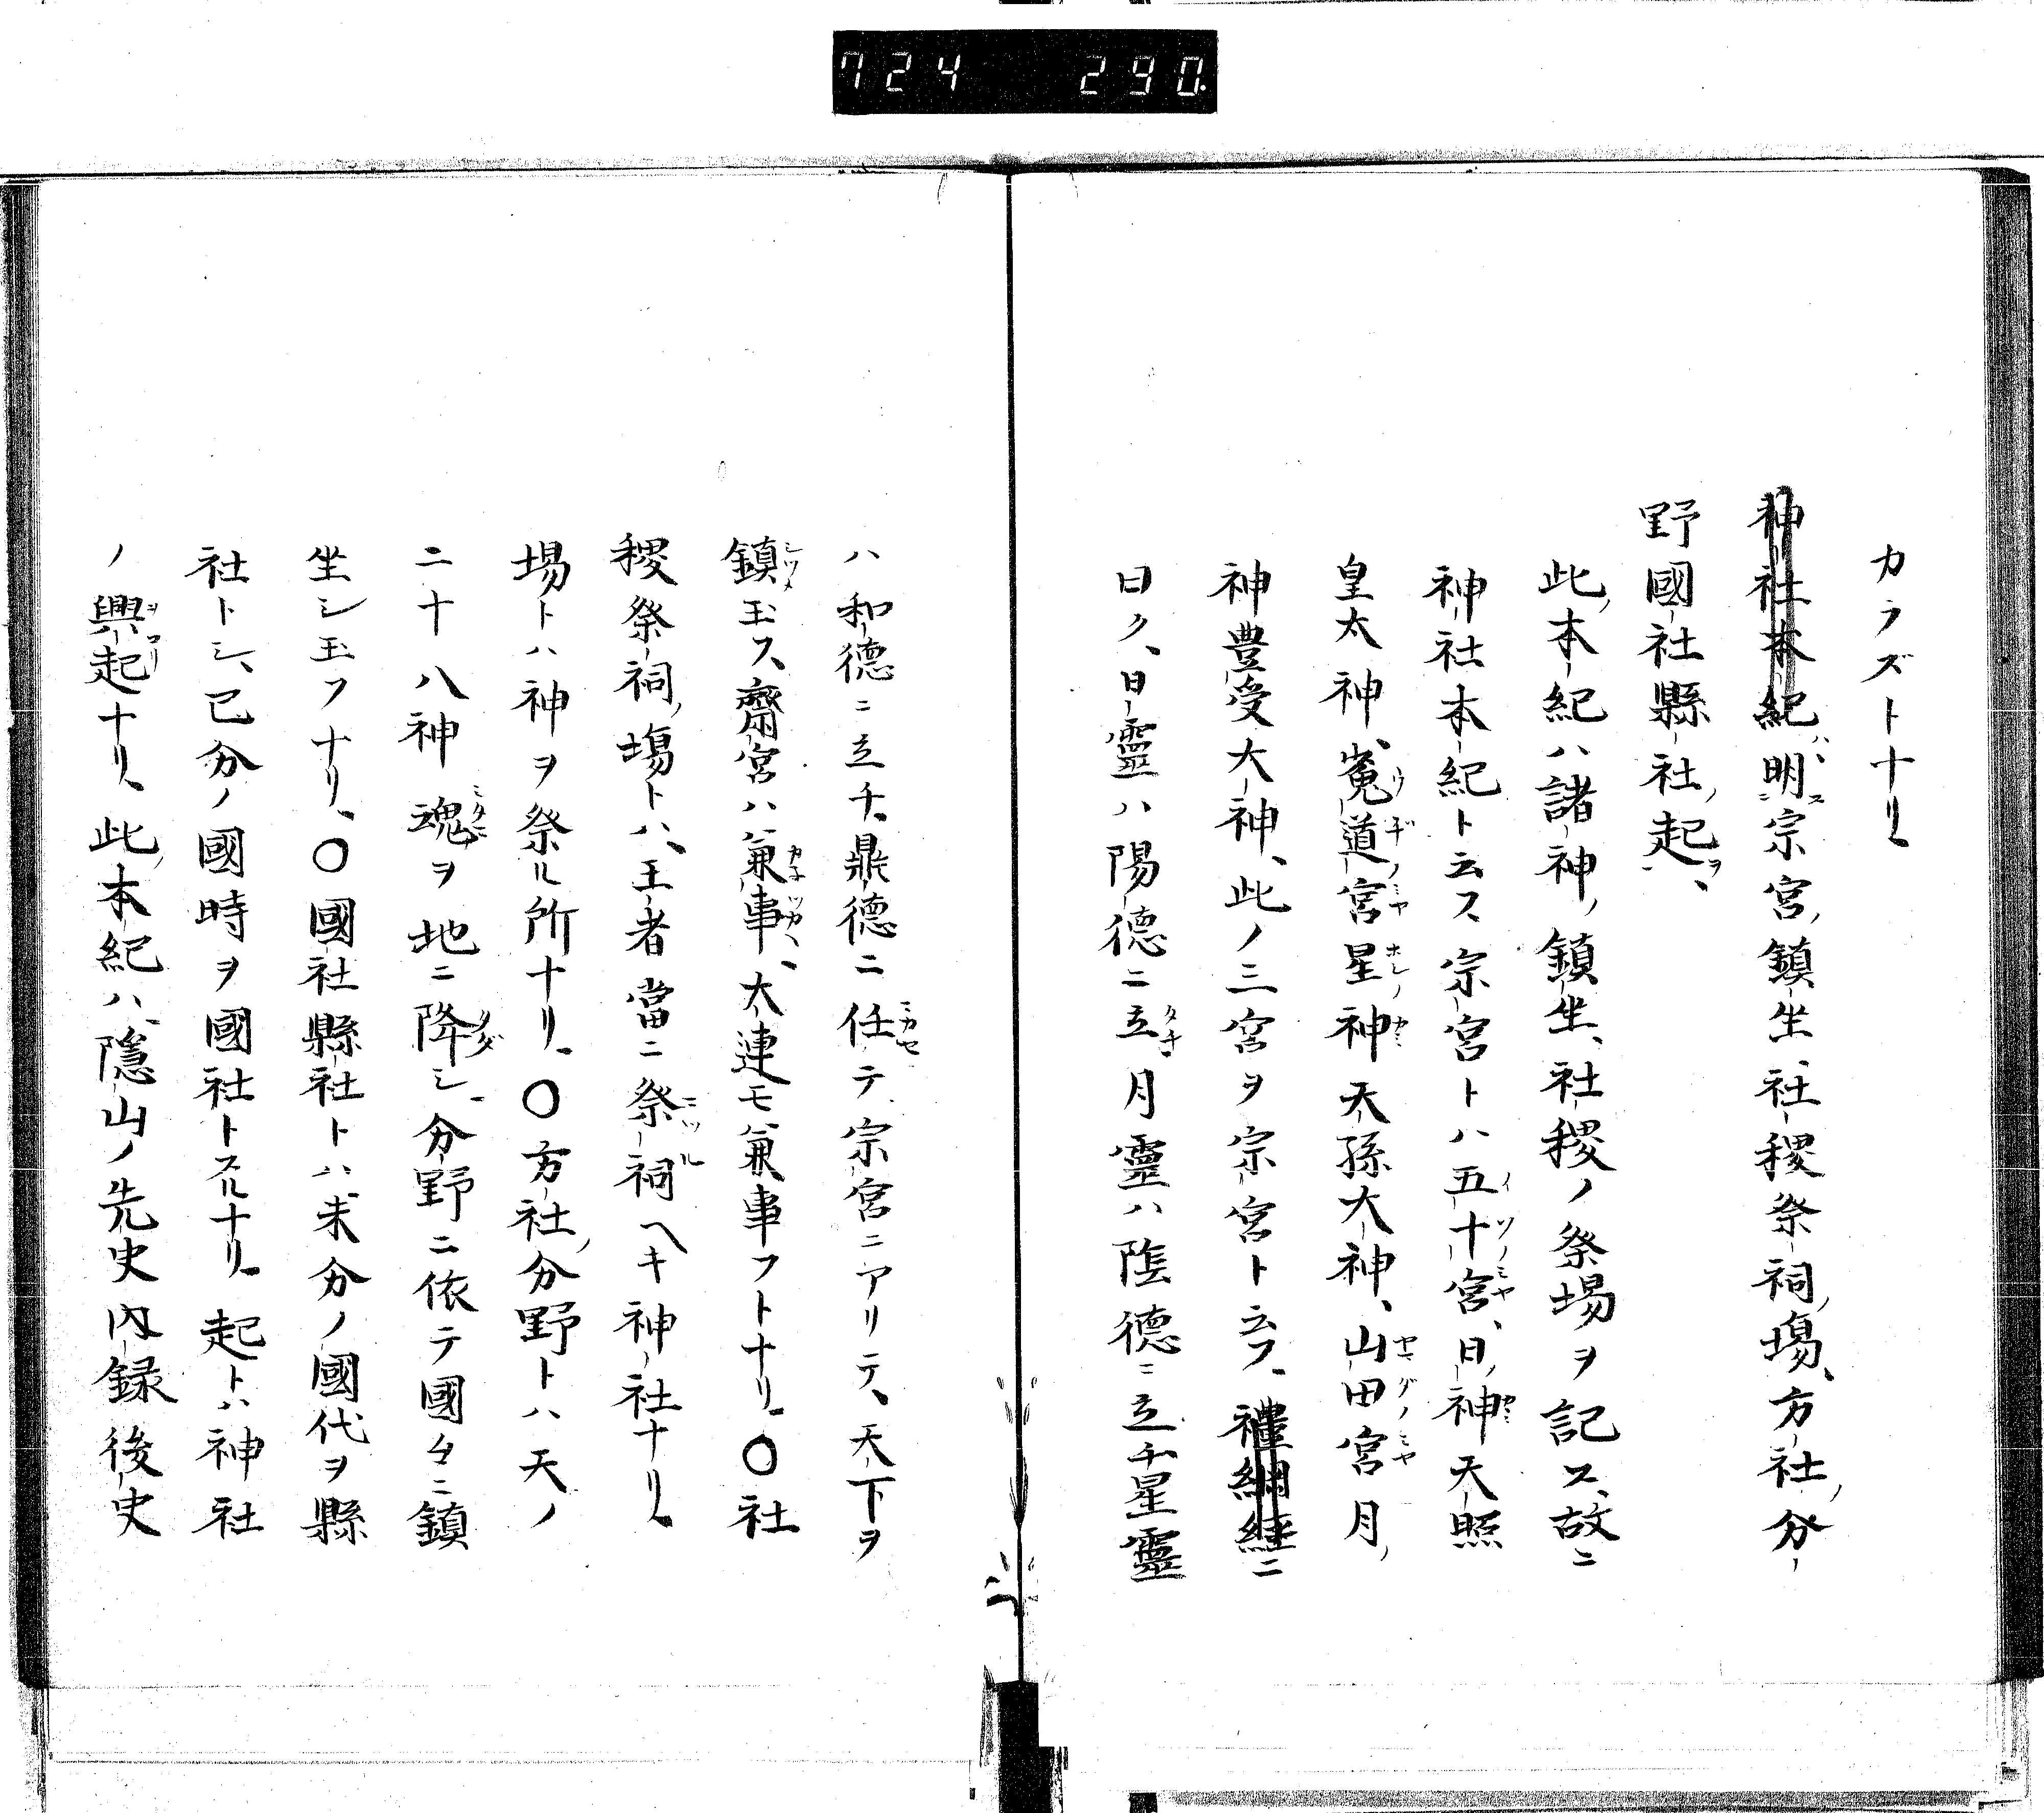 724 290.
カラズトナリ、
神社本紀ハ、明ニス宗宮ノ鎮坐、社稷祭祠ノ塲、方社ノ分
野國社縣社ノ起ヲ、
此ノ本紀ハ諸神ノ鎮坐、社稷ノ祭場ヲ記ス、故ニ
神社本紀ト云フ、宗宮トハ五十宮、日ノ神天照
皇太神、菟道宮星神天孫大神、山田宮月ノ
神豊受大神、此ノ三宮ヲ宗宮ト云フ、禮綱經ニ
曰ク、日靈ハ陽德ニ立、月靈ハ陰德ニ立チ星靈
ハ和德ニ立チ、鼎德ニ任テ宗宮ニアリテ、天下ヲ
鎮玉フ、齋宮ハ兼事、大連モ兼事フトナリ、〇社
稷祭祠ノ塲トハ、王者當ニ祭祠ヘキ神社ナリ、
場トハ神ヲ祭ル所ナリ、〇方社ノ分野トハ天ノ
二十八神魂ヲ地ニ降シ、分野ニ依テ國々ニ鎮
坐シ玉フナリ、〇國社縣社トハ、末分ノ國代ヲ縣
社トシ、已分ノ國時ヲ國社トスルナリ、起トハ神社
ノ興起ナリ、此ノ本紀ハ、隱山ノ先史内録後史